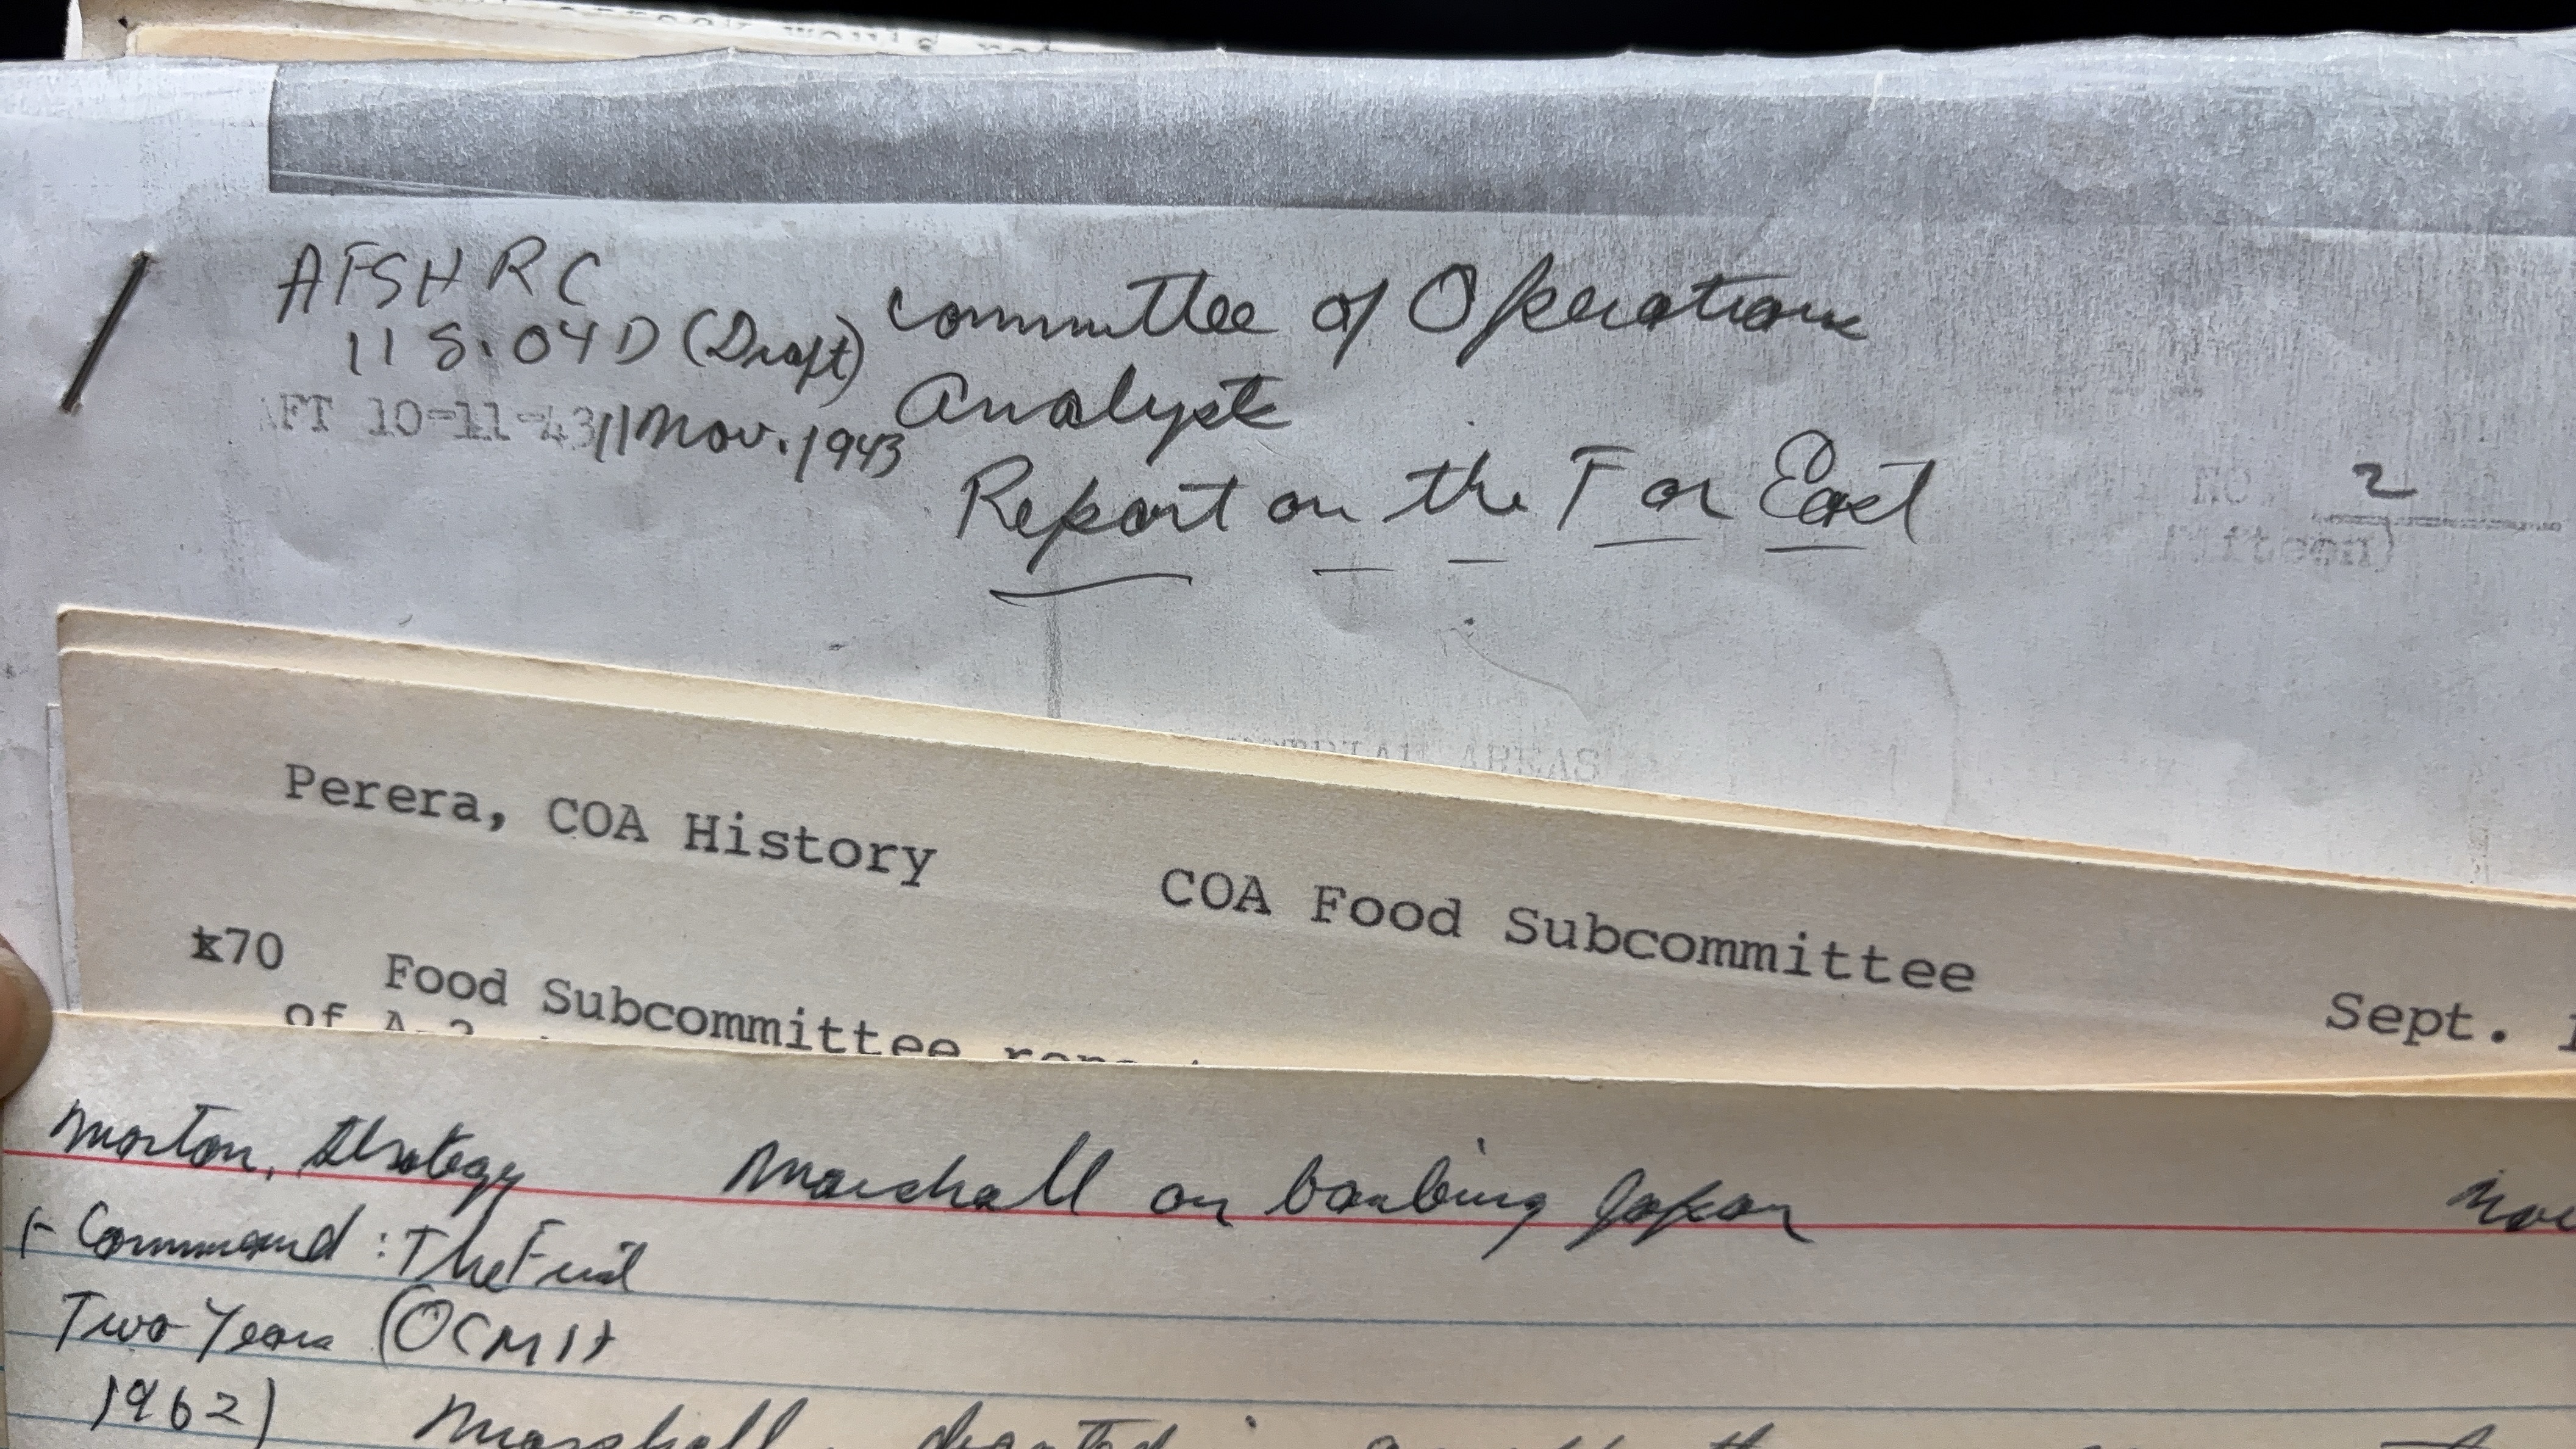 AFSHRC
118.04D (Draft)
AFT 10-11-43 11 Nov. 1943
Committee of Operations
Analysts
Report on the Far East
2
AREAS
Perera, COA History
COA Food Subcommittee
Sept.
x70 Food Subcommittee
of A-2
Morton, Strategy
Marshall on bombing Japan
Nov
+ Command: The First
Two Years (OCMH
1962)
Marshall